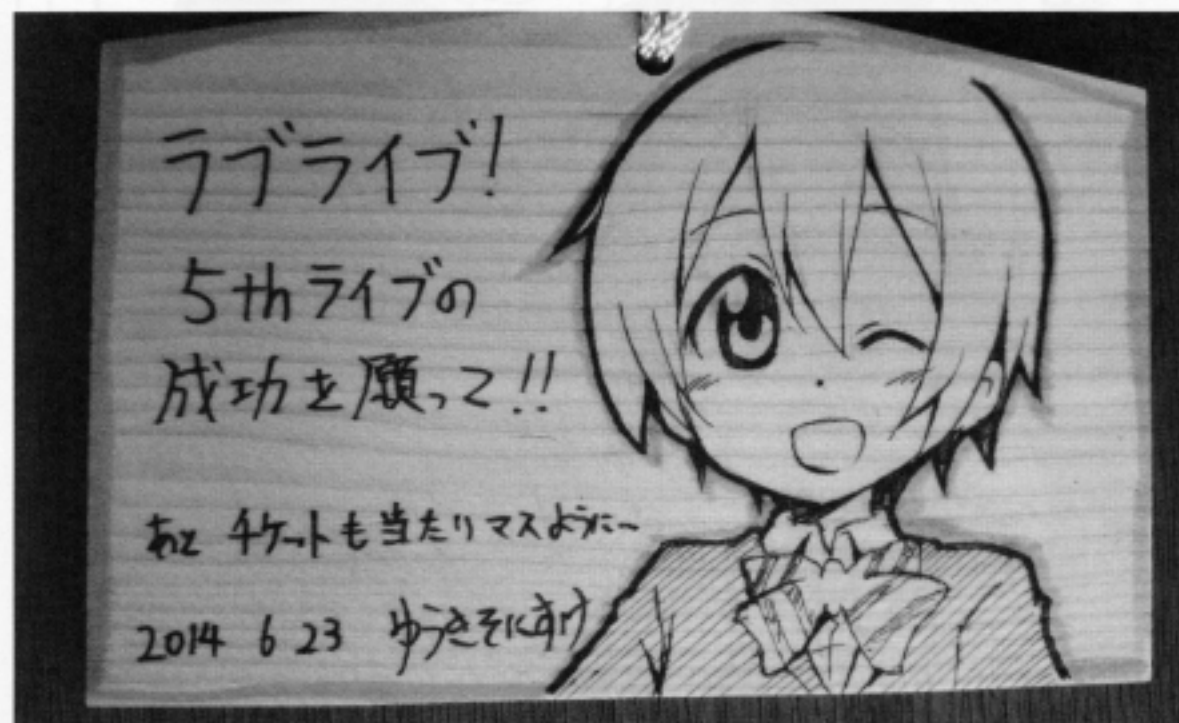 ラブライブ!
5thライブの
成功を願って!!
あと チケットも当たりマスように〜
2014 6 23 ゆうきそにすけ